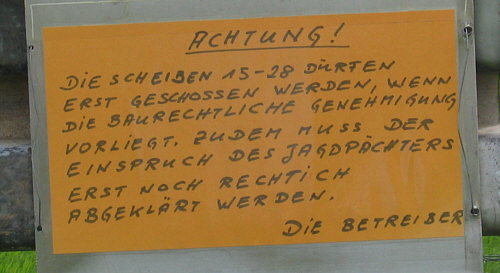 ACHTUNG!
DIE SCHEIBEN 15-28 DÜRFEN
ERST GESCHOSSEN WERDEN, WENN
DIE BAURECHTLICHE GENEHMIGUNG
VORLIEGT. ZUDEM MUSS DER
EINSPRUCH DES JAGDPÄCHTERS
ERST NOCH RECHTICH
ABGEKLÄRT WERDEN.
DIE BETREIBER